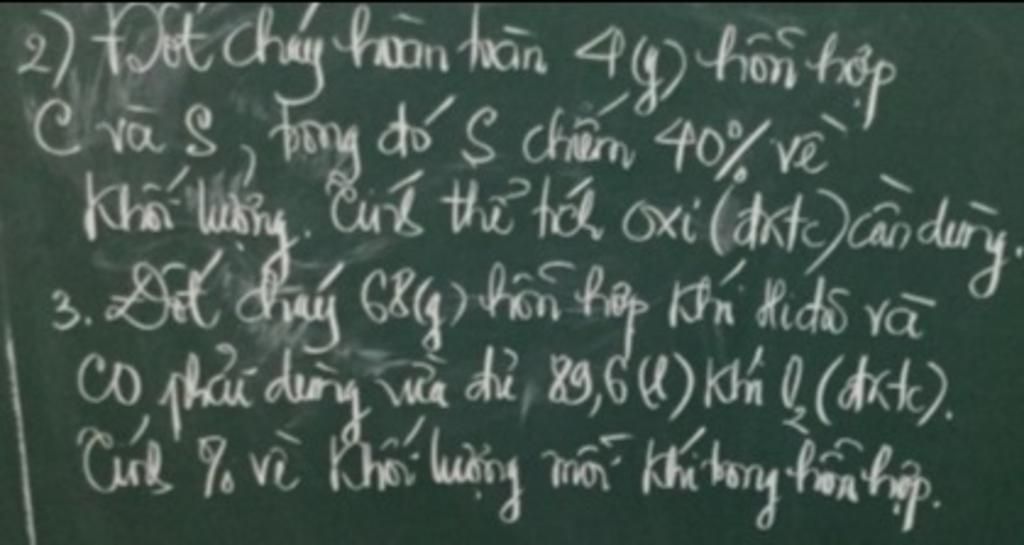 2) Đốt cháy hoàn toàn 4(g) hỗn hợp
C và S, trong đó S chiếm 40% về
khối lượng. Tính thể tích oxi (đktc) cần dùng.
3. Đốt cháy 68(g) hỗn hợp khí Hiđrô và
CO phải dùng vừa đủ 89,6(l) khí O₂ (đktc).
Tính % về khối lượng mỗi khí trong hỗn hợp.